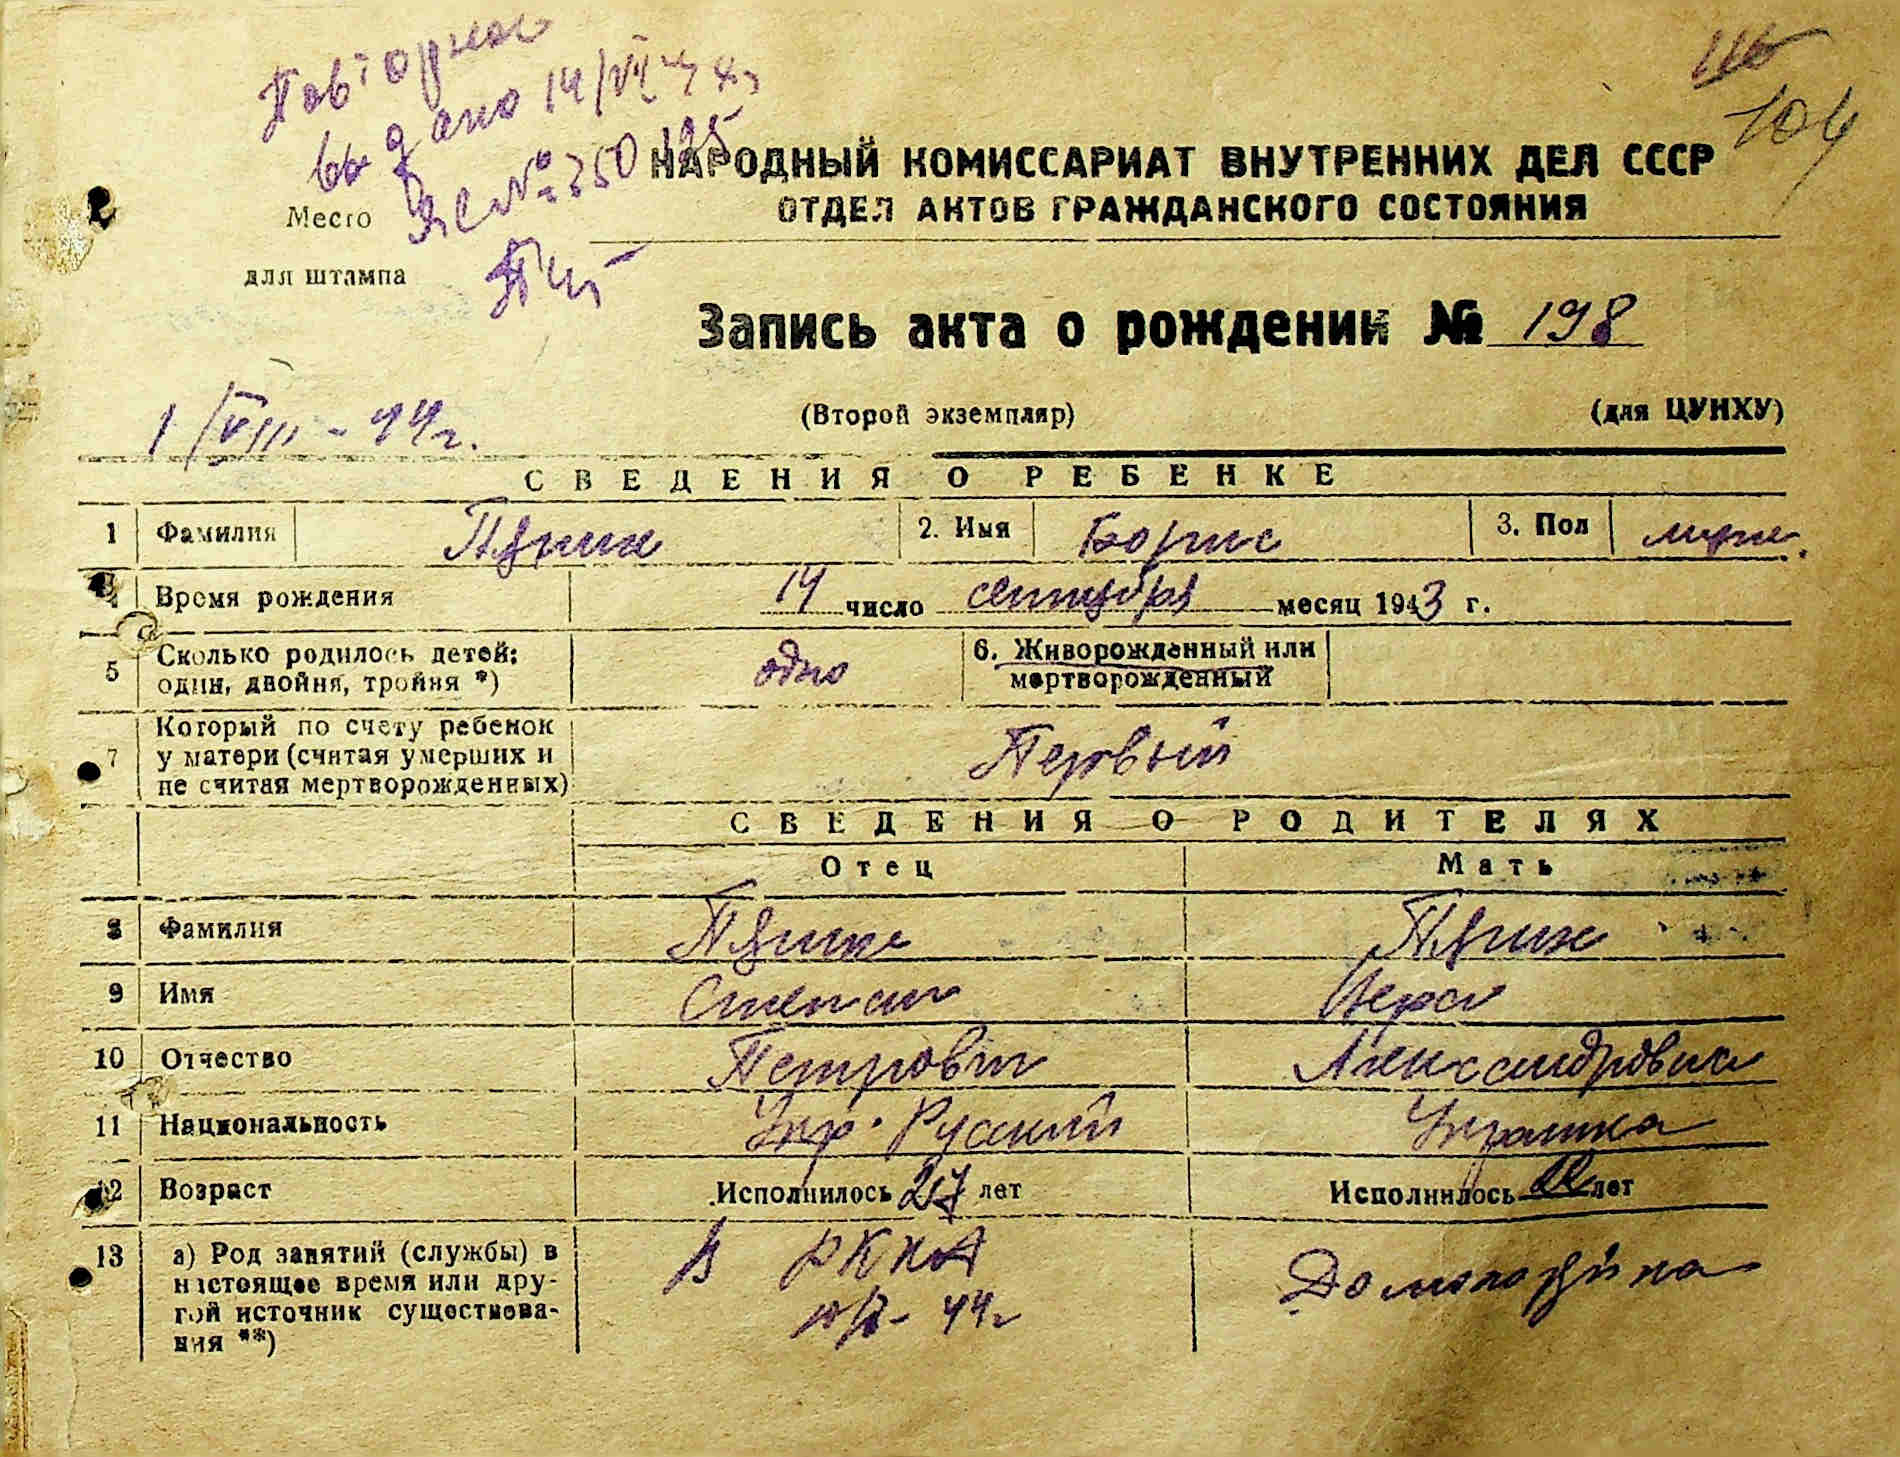 Повторно
выдано 14/VII-4
№ 350195
116
104
НАРОДНЫЙ КОМИССАРИАТ ВНУТРЕННИХ ДЕЛ СССР
ОТДЕЛ АКТОВ ГРАЖДАНСКОГО СОСТОЯНИЯ
Место
для штампа
Запись акта о рождении № 198
1/VIII-44г.
(Второй экземпляр)
(для ЦУНХУ)
СВЕДЕНИЯ О РЕБЕНКЕ
1 Фамилия 2. Имя Борис 3. Пол муж.
4 Время рождения 14 число сентября месяц 1943 г.
5 Сколько родилось детей: один, двойня, тройня *) одно 6. Живорожденный или мертворожденный
7 Который по счету ребенок
у матери (считая умерших и
не считая мертворожденных) Первый
СВЕДЕНИЯ О РОДИТЕЛЯХ
Отец Мать
8 Фамилия
9 Имя Степан Вера
10 Отчество Петрович Александровна
11 Национальность Укр. Русский Украинка
12 Возраст Исполнилось 27 лет Исполнилось лет
13 а) Род занятий (службы) в
настоящее время или дру-
гой источник существова-
ния **)
В РККА
44г
Домохозяйка